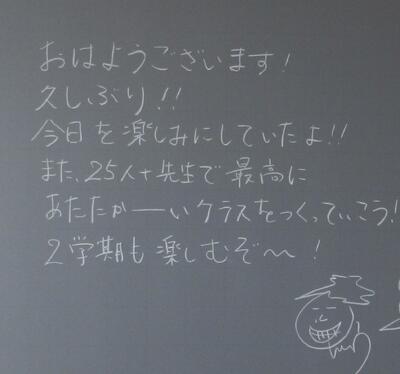 おはようございます!
久しぶり!!
今日を楽しみにしていたよ!!
また、25人+先生で最高に
あたたか——いクラスをつくっていこう!
2学期も楽しむぞ〜!